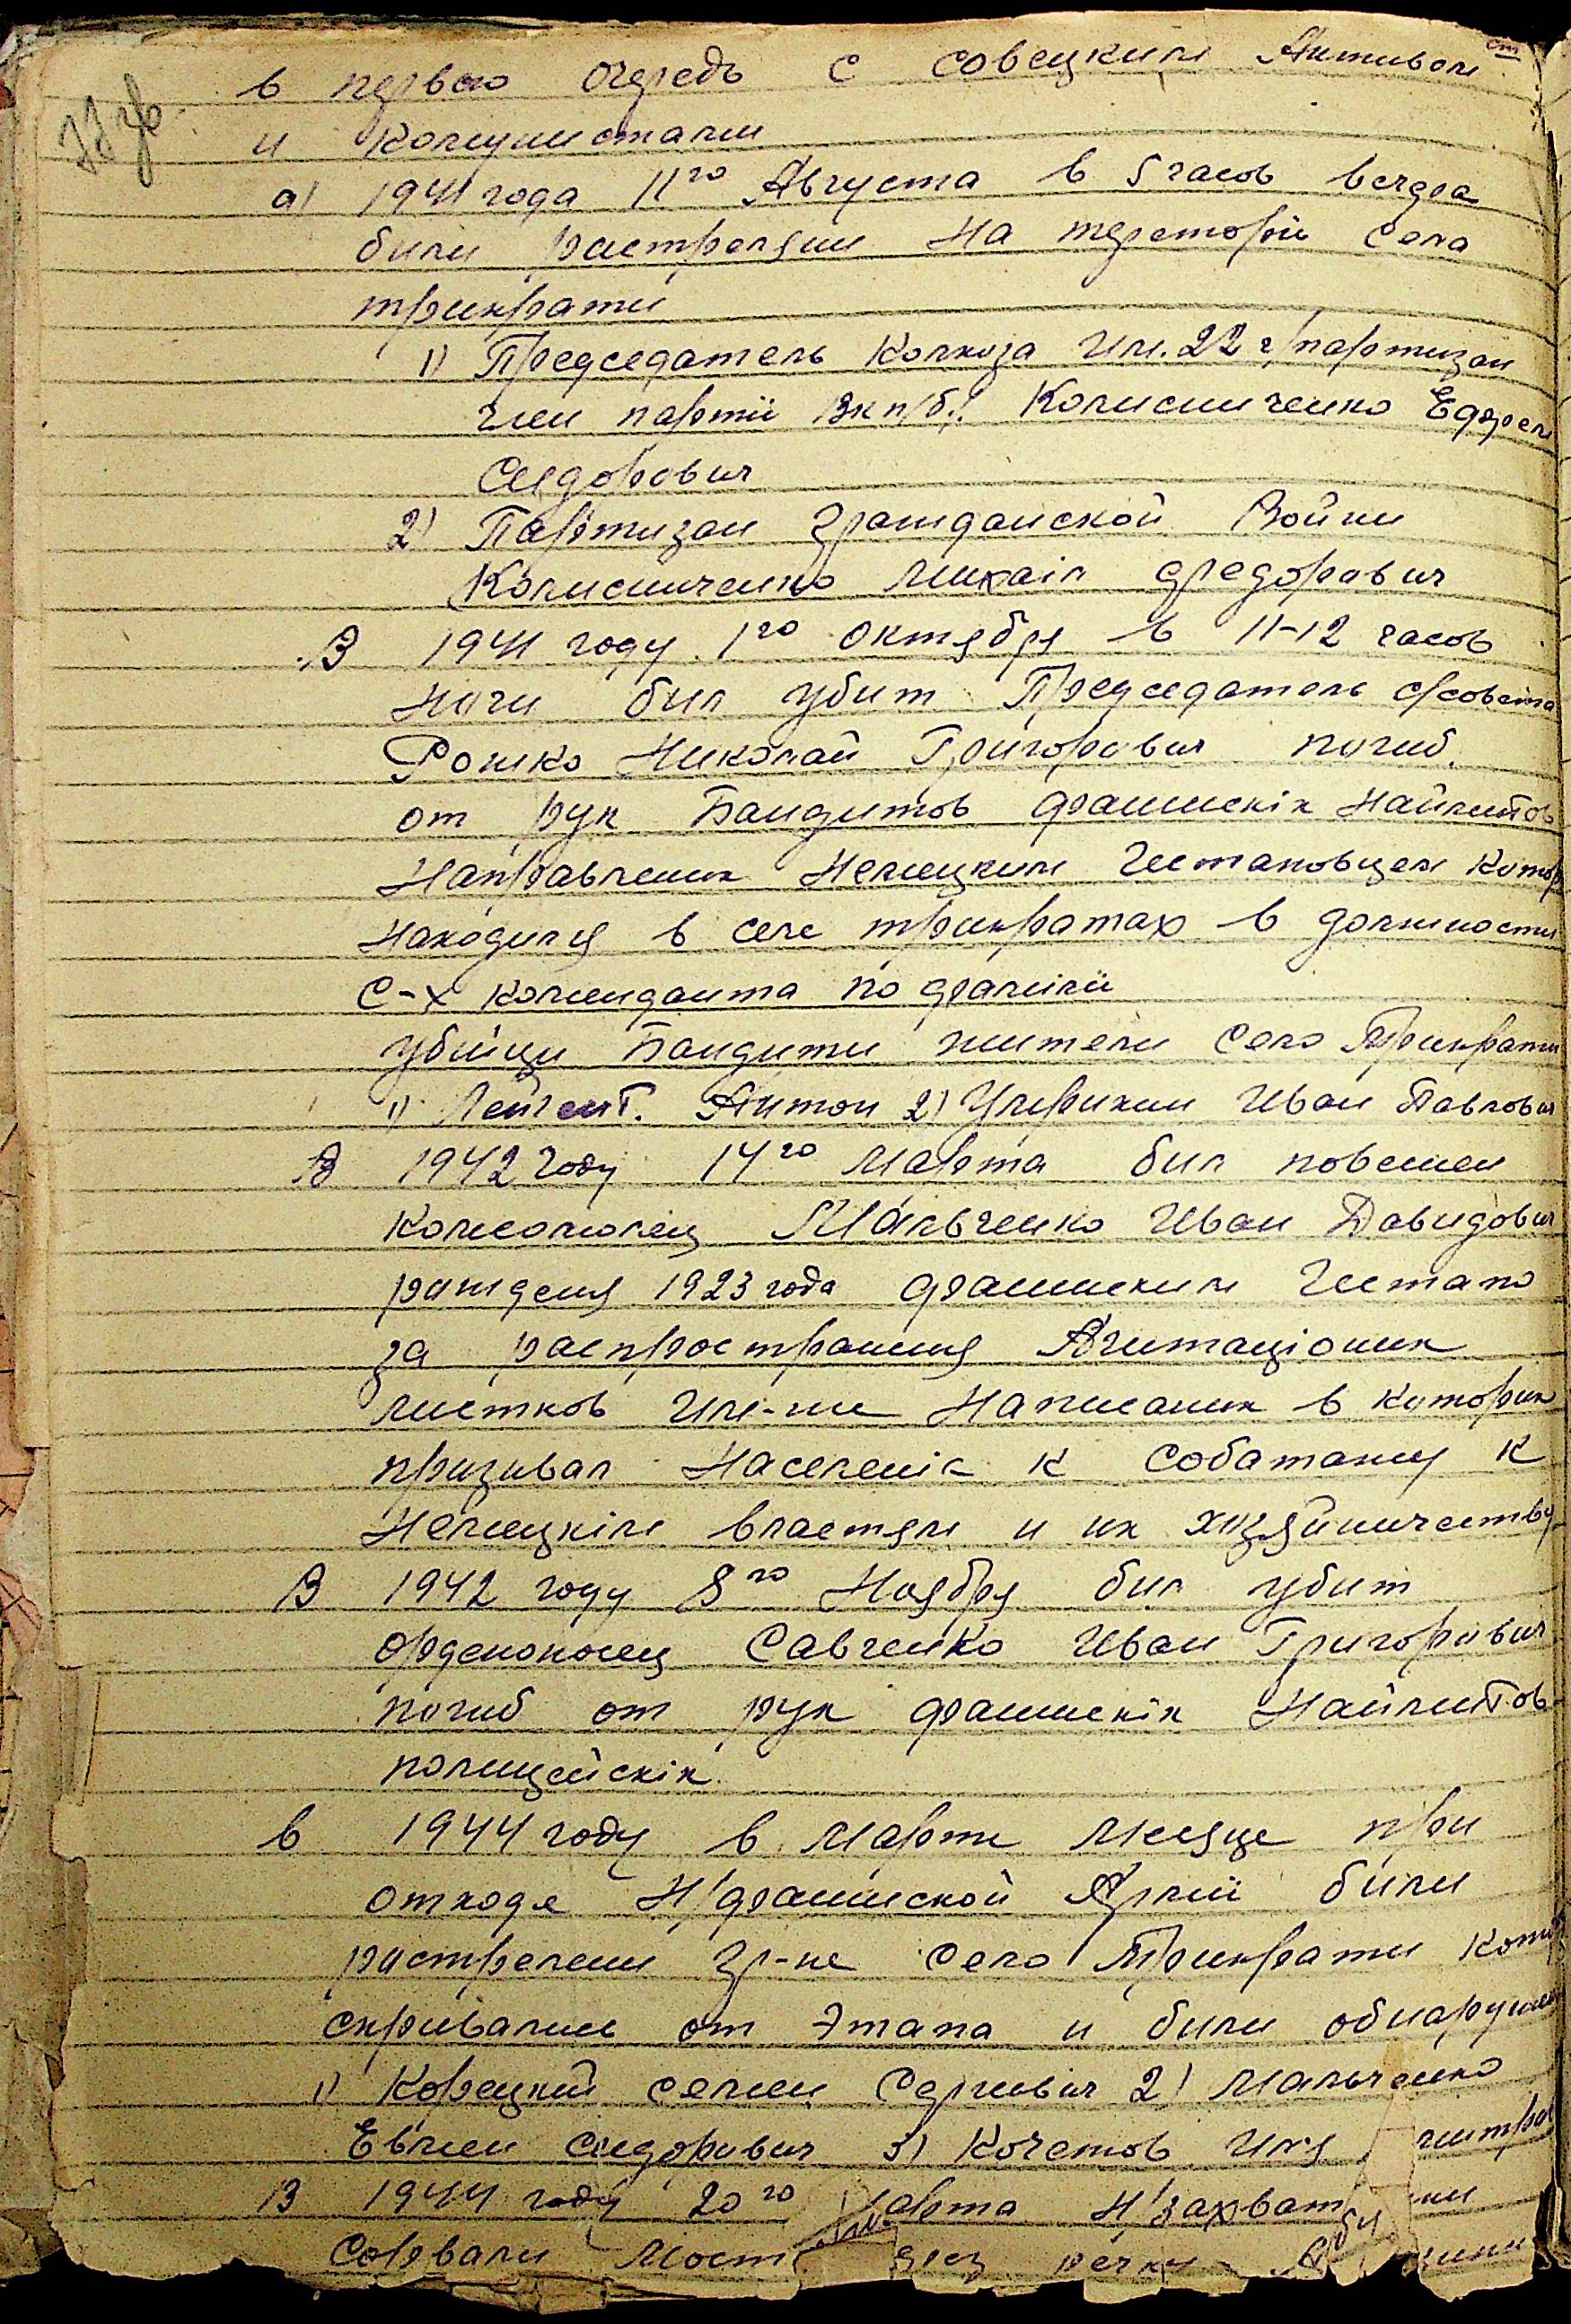 в первою очередь с совецким Активом ст
и комунистами
а) 1941 года 11го Августа в 5 часов вечера
били растреляни на теретории села
трикрати
1) Председатель Колхоза Им. 22 г/партизан
член партіі Вкп/б/ Колисниченко Ефрем
Сидорович
2) Партизан Гражданской Войни
Колисниченко михаіл федорович
В 1941 году 1го октября в 11-12 часов
ночи бил убит Председатель с/совета
Рошко Николай Григорович погиб
от рук Бандитов фашискіх Наймитов
Направлених Немецким Гестаповцем котор
находился в селе трикратах в должности
с-х коменданта по фаміліі
убийци Бандити жители села Трикрати
1) Антон 2) Иван Павлович
В 1942 году 14го марта бил повешен
комсомолец Мальченко Иван Давидович
рождения 1923 года фашиским Гестапо
за распространия Агитаціоних
листков Им-же Написаних в которих
призивал Населеніе к соботажу к
Немецкім властям и их хозяйничеству
В 1942 году 8го Ноября бил убит
орденоносец Савченко Иван Григорович
погиб от рук фашискіх Наймитов
полицейскіх
в 1944 году в марте месяце при
отходе Н/фашиской Арміі били
растрелени гр-не села Трикрати котор
скривались от Этапа и били обнаружен
1) Корецкий семен Сергиевич 2) Мальченко
Евмен сидорович 3) Кочетов Иля
В 1944 году 20го марта Н/захват
Сорвали мост речку